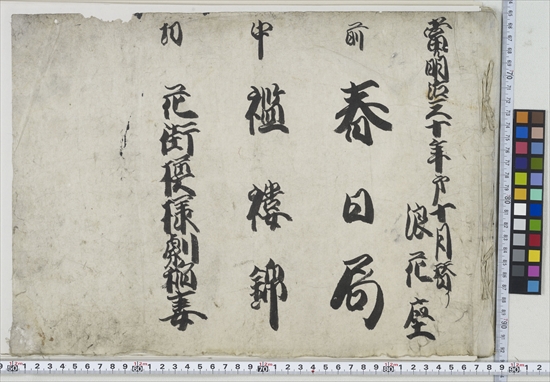 當明治三十年第十月替り
浪花座
前 春日局
中 襤褸錦
切 花街模様